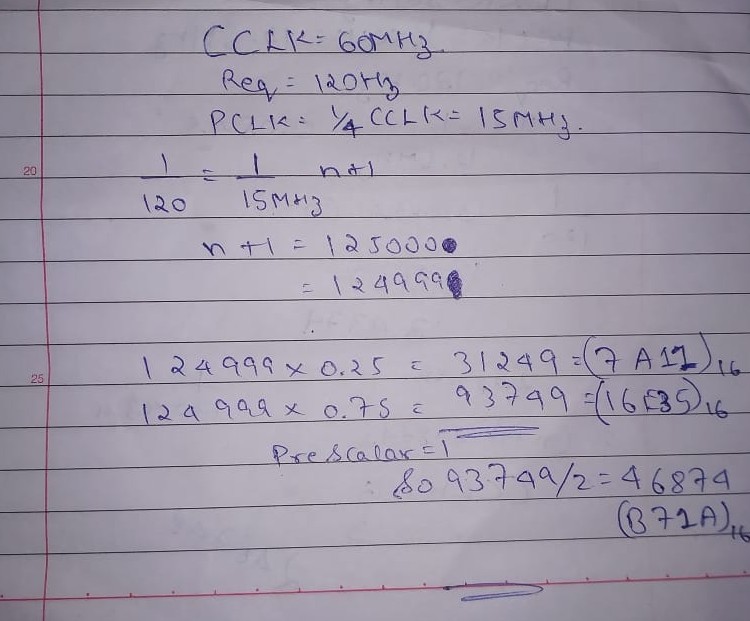 CCLK= 60MHz.
Req = 120Hz
PCLK= 1/4 CCLK= 15MHz.
20
1/120 = 1/15MHz n+1
n+1 = 125000
= 124999
124999 x 0.25 = 31249 =(7A11)16
25
124999 x 0.75 = 93749 =(16E35)16
PreScalar=1
So 93749/2=46874
(B71A)16